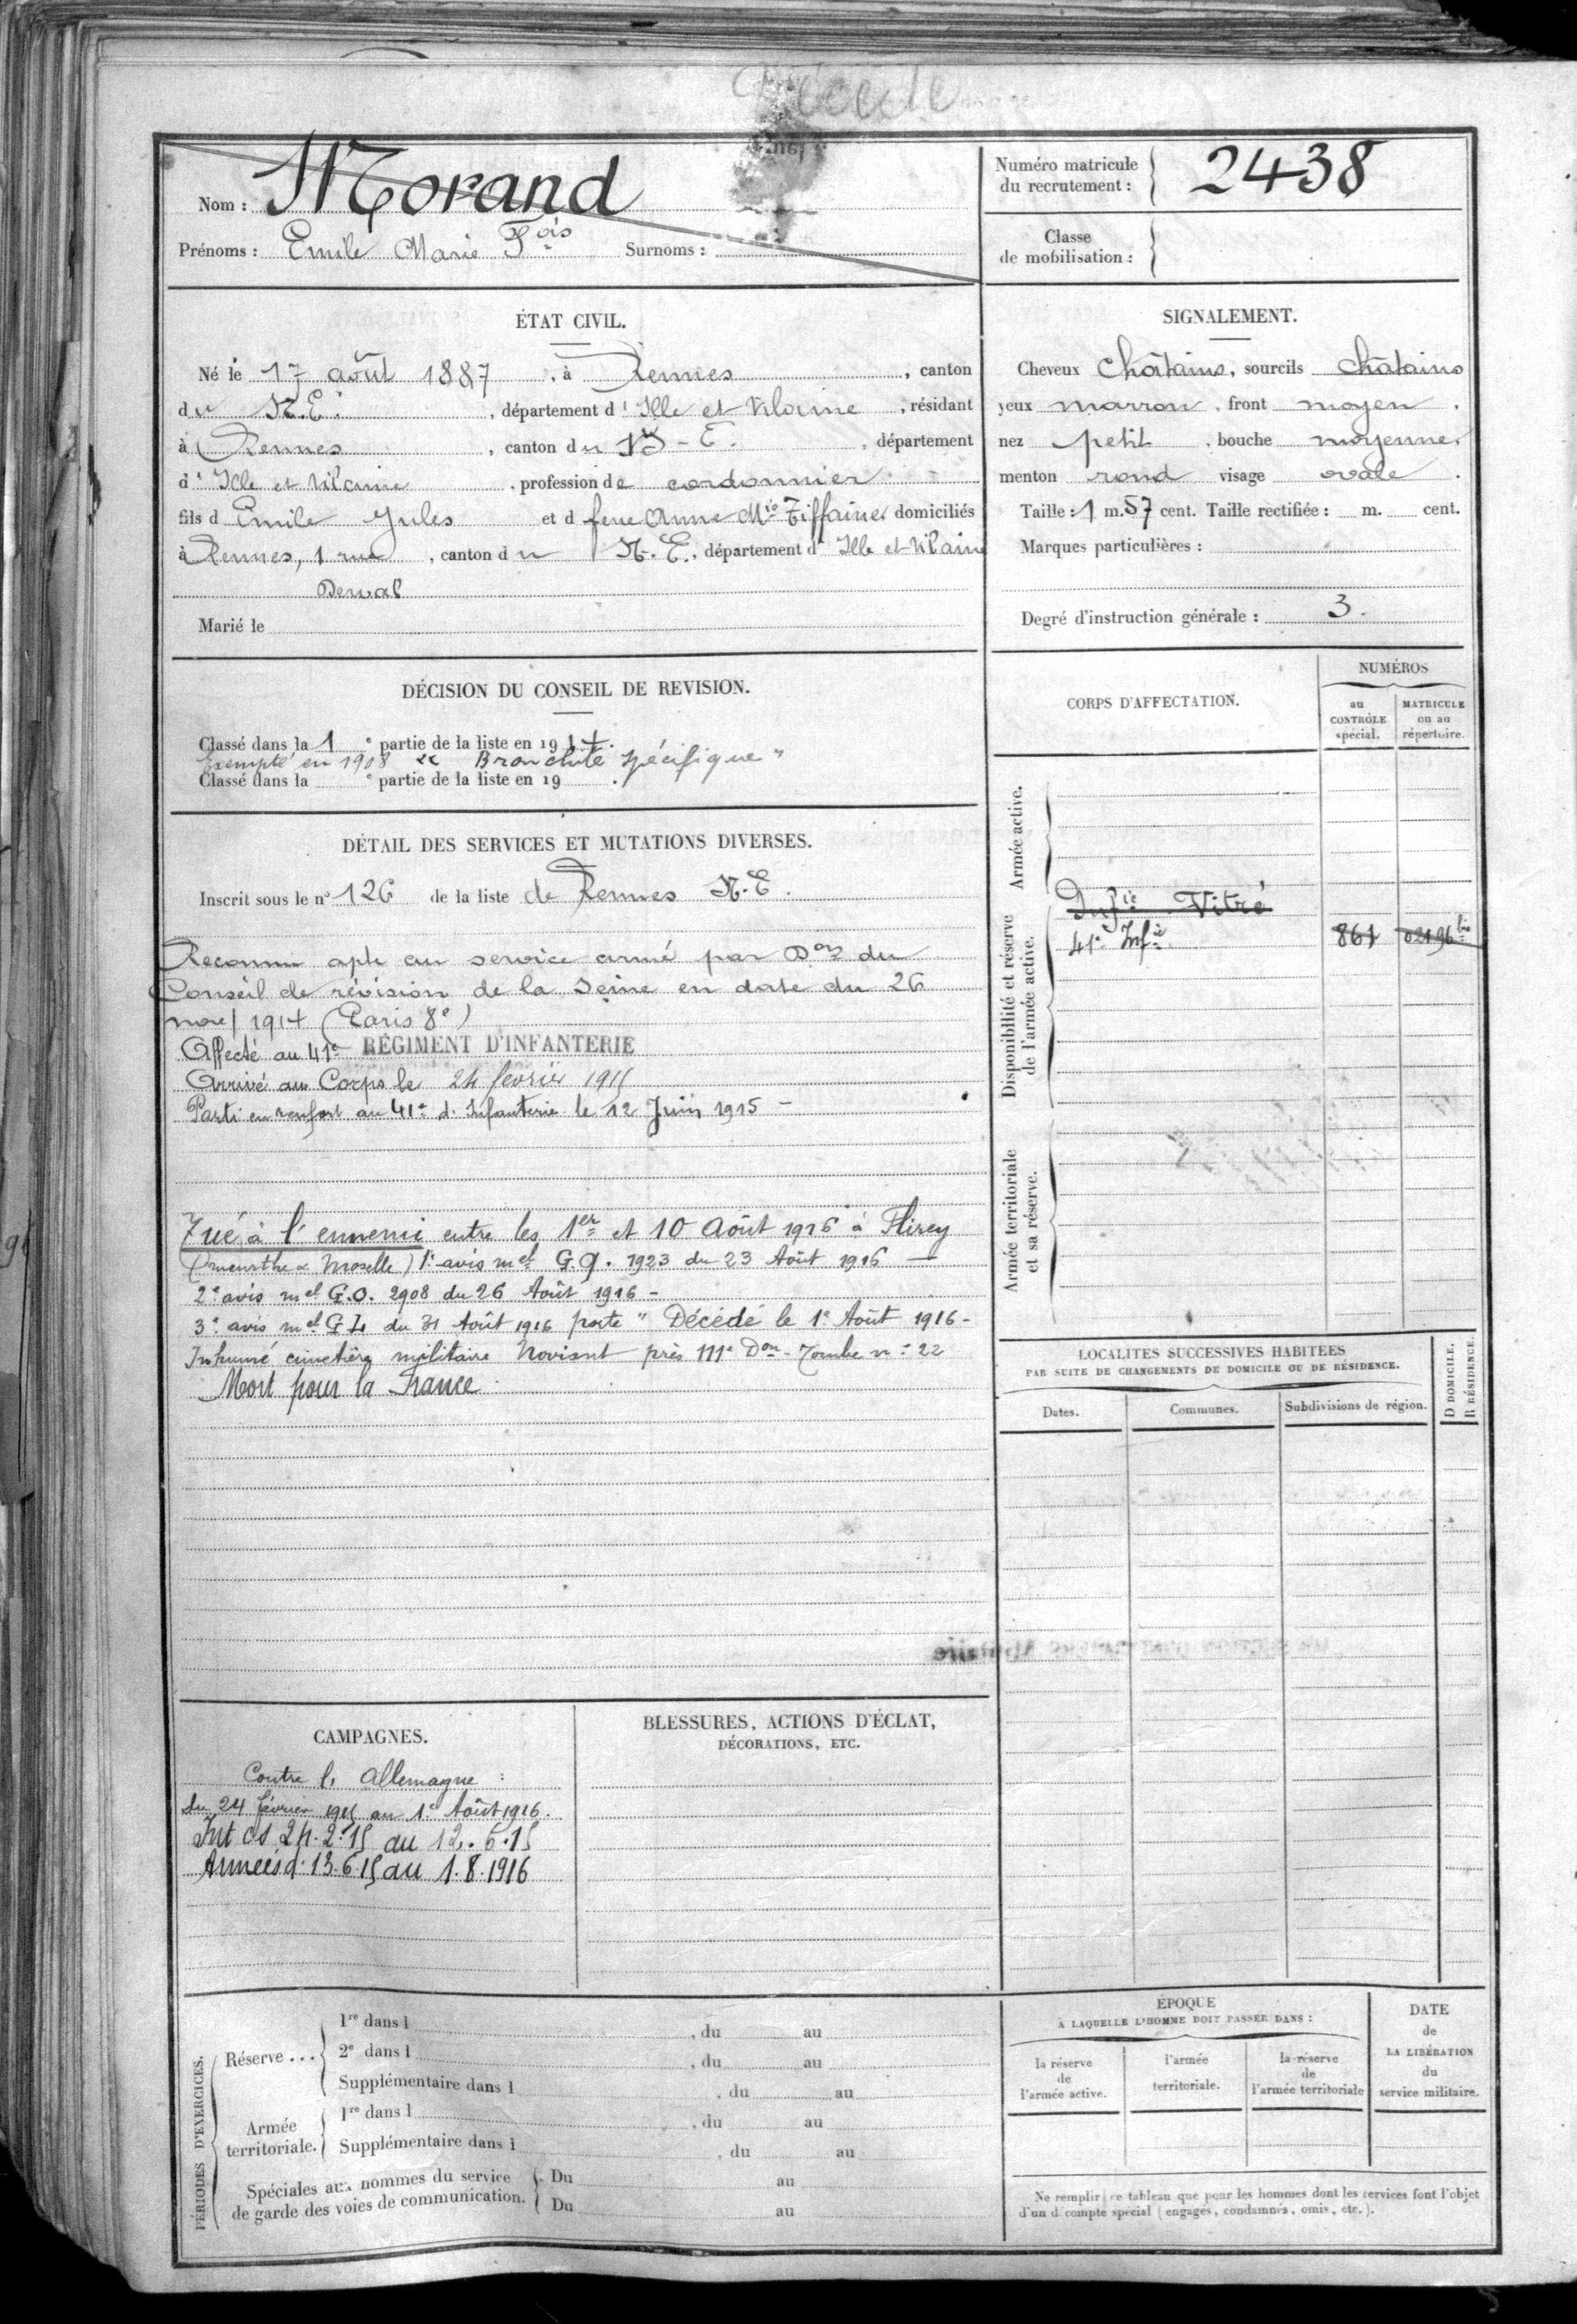 Décédé
Nom : Morand
Prénoms : Emile Marie Fois Surnoms :
Numéro matricule
du recrutement : 2438
Classe
de mobilisation :
ÉTAT CIVIL.
Né le 17 août 1887, à Rennes, canton
du N.E., département d'Ille et Vilaine, résidant
à Rennes, canton du N-E., département
d'Ille et Vilaine, profession de cordonnier
fils d Emile Jules et d feue Anne Mie Tiffaine domiciliés
à Rennes, 1 rue, canton du N.E., département d'Ille et Vilaine
Derval
Marié le
SIGNALEMENT.
Cheveux châtains, sourcils châtains
yeux marron, front moyen,
nez petit, bouche moyenne,
menton rond visage ovale.
Taille : 1 m. 57 cent. Taille rectifiée : m. cent.
Marques particulières :
Degré d'instruction générale : 3.
DÉCISION DU CONSEIL DE REVISION.
Classé dans la 1e partie de la liste en 1914.
Exempté en 1908 "Bronchite spécifique"
Classé dans la e partie de la liste en 19 .
DÉTAIL DES SERVICES ET MUTATIONS DIVERSES.
Inscrit sous le n° 126 de la liste de Rennes N.E.
Reconnu apte au service armé par Don du
Conseil de révision de la Seine en date du 26
nov 1914 (Paris 8e)
Affecté au 41e RÉGIMENT D'INFANTERIE
Arrivé au Corps le 24 février 1915
Parti en renfort au 41e d'Infanterie le 12 Juin 1915 -
Tué à l'ennemi entre les 1er et 10 Août 1916 à Flirey
(Meurthe & Moselle) 1e avis mel G.9. 1923 du 23 Août 1916 -
2e avis mel G.O. 2908 du 26 Août 1916 -
3e avis mel du 31 Août 1916 porte "Décédé le 1e Août 1916 -
Inhumé cimetière militaire Noviant près 111e Don - Tombe n° 22
Mort pour la France
CORPS D'AFFECTATION.
NUMÉROS
au
CONTRÔLE
spécial.
MATRICULE
ou au
répertoire.
Armée active.
Disponibilité et réserve
de l'armée active.
Infie Vitré
41e Infie 861 02196 bis
Armée territoriale
et sa réserve.
LOCALITES SUCCESSIVES HABITÉES
PAR SUITE DE CHANGEMENTS DE DOMICILE OU DE RÉSIDENCE.
Dates.
Communes.
Subdivisions de région.
D DOMICILE.
R RÉSIDENCE.
CAMPAGNES.
Contre l'Allemagne :
du 24 février 1915 au 1e Août 1916.
Int cs 24.2.15 au 12.6.15
Armées d. 13.6.15 au 1.8.1916
BLESSURES, ACTIONS D'ÉCLAT,
DÉCORATIONS, ETC.
PÉRIODES D'EXERCICES.
Réserve ...
1re dans l , du au
2e dans l , du au
Supplémentaire dans l , du au
Armée
territoriale.
1re dans l , du au
Supplémentaire dans l , du au
Spéciales aux hommes du service
de garde des voies de communication.
Du au
Du au
ÉPOQUE
À LAQUELLE L'HOMME DOIT PASSER DANS :
la réserve
de
l'armée active.
l'armée
territoriale.
la réserve
de
l'armée territoriale
DATE
de
LA LIBÉRATION
du
service militaire.
Ne remplir ce tableau que pour les hommes dont les services font l'objet
d'un décompte spécial (engagés, condamnés, omis, etc.).